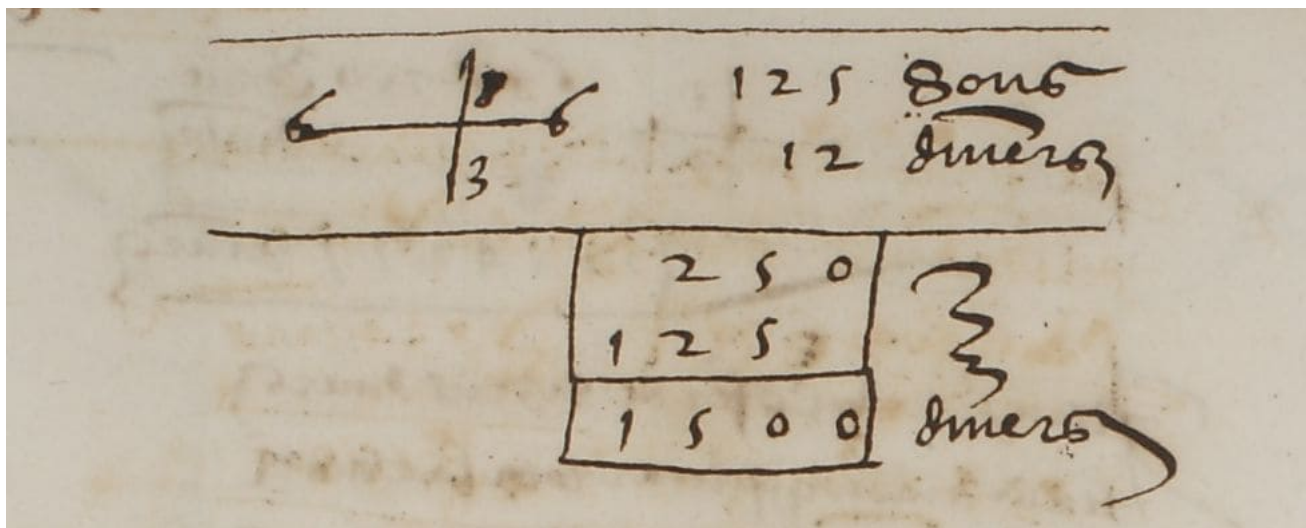 8 125 sous
6 6
3 12 diners
250
125
1500 diners